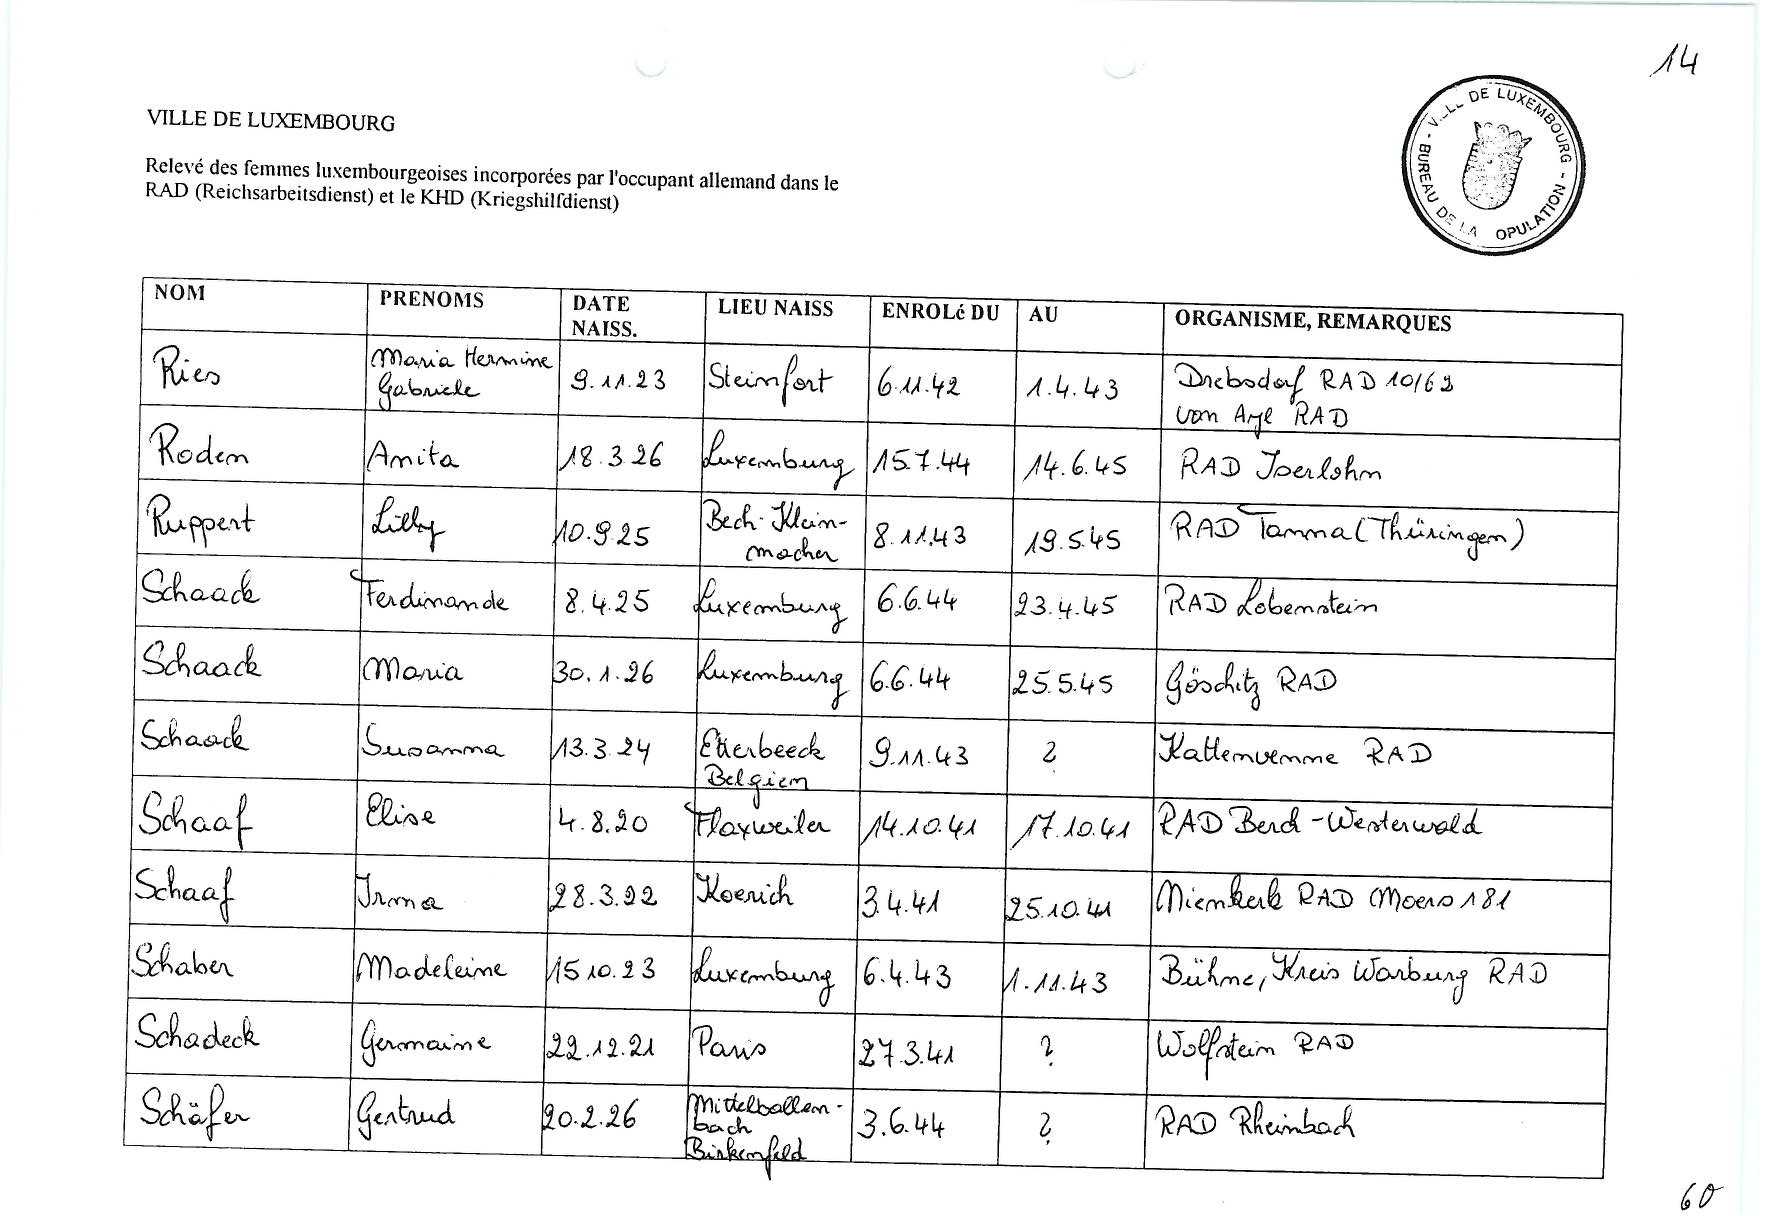 14
VILLE DE LUXEMBOURG - BUREAU DE LA OPULATION -
VILLE DE LUXEMBOURG
Relevé des femmes luxembourgeoises incorporées par l'occupant allemand dans le
RAD (Reichsarbeitsdienst) et le KHD (Kriegshilfdienst)
NOM PRENOMS DATE NAISS. LIEU NAISS ENROLé DU AU ORGANISME, REMARQUES
Ries Maria Hermine Gabriele 9.11.23 Steinfort 6.11.42 1.4.43 Drebsdorf RAD 10/62 von RAD
Roden Anita 18.3.26 Luxemburg 15.7.44 14.6.45 RAD Iserlohn
Ruppert Lilly 10.9.25 Bech-Kleinmacher 8.11.43 19.5.45 RAD Tanna (Thüringen)
Schaack Ferdinande 8.4.25 Luxemburg 6.6.44 23.4.45 RAD Lobenstein
Schaack Maria 30.1.26 Luxemburg 6.6.44 25.5.45 Göschitz RAD
Schaack Susanna 13.3.24 Etterbeeck Belgien 9.11.43 ? Kattenvenne RAD
Schaaf Elise 4.8.20 Flaxweiler 14.10.41 17.10.41 RAD Berch-Westerwald
Schaaf Irma 28.3.22 Koerich 3.4.41 25.10.41 Nienkerk RAD Moers 181
Schaber Madeleine 15.10.23 Luxemburg 6.4.43 1.11.43 Bühne, Kreis Warburg RAD
Schadeck Germaine 22.12.21 Paris 27.3.41 ? Wolfstein RAD
Schäfer Gertrud 20.2.26 Mittelbollenbach Birkenfeld 3.6.44 ? RAD Rheinbach
60